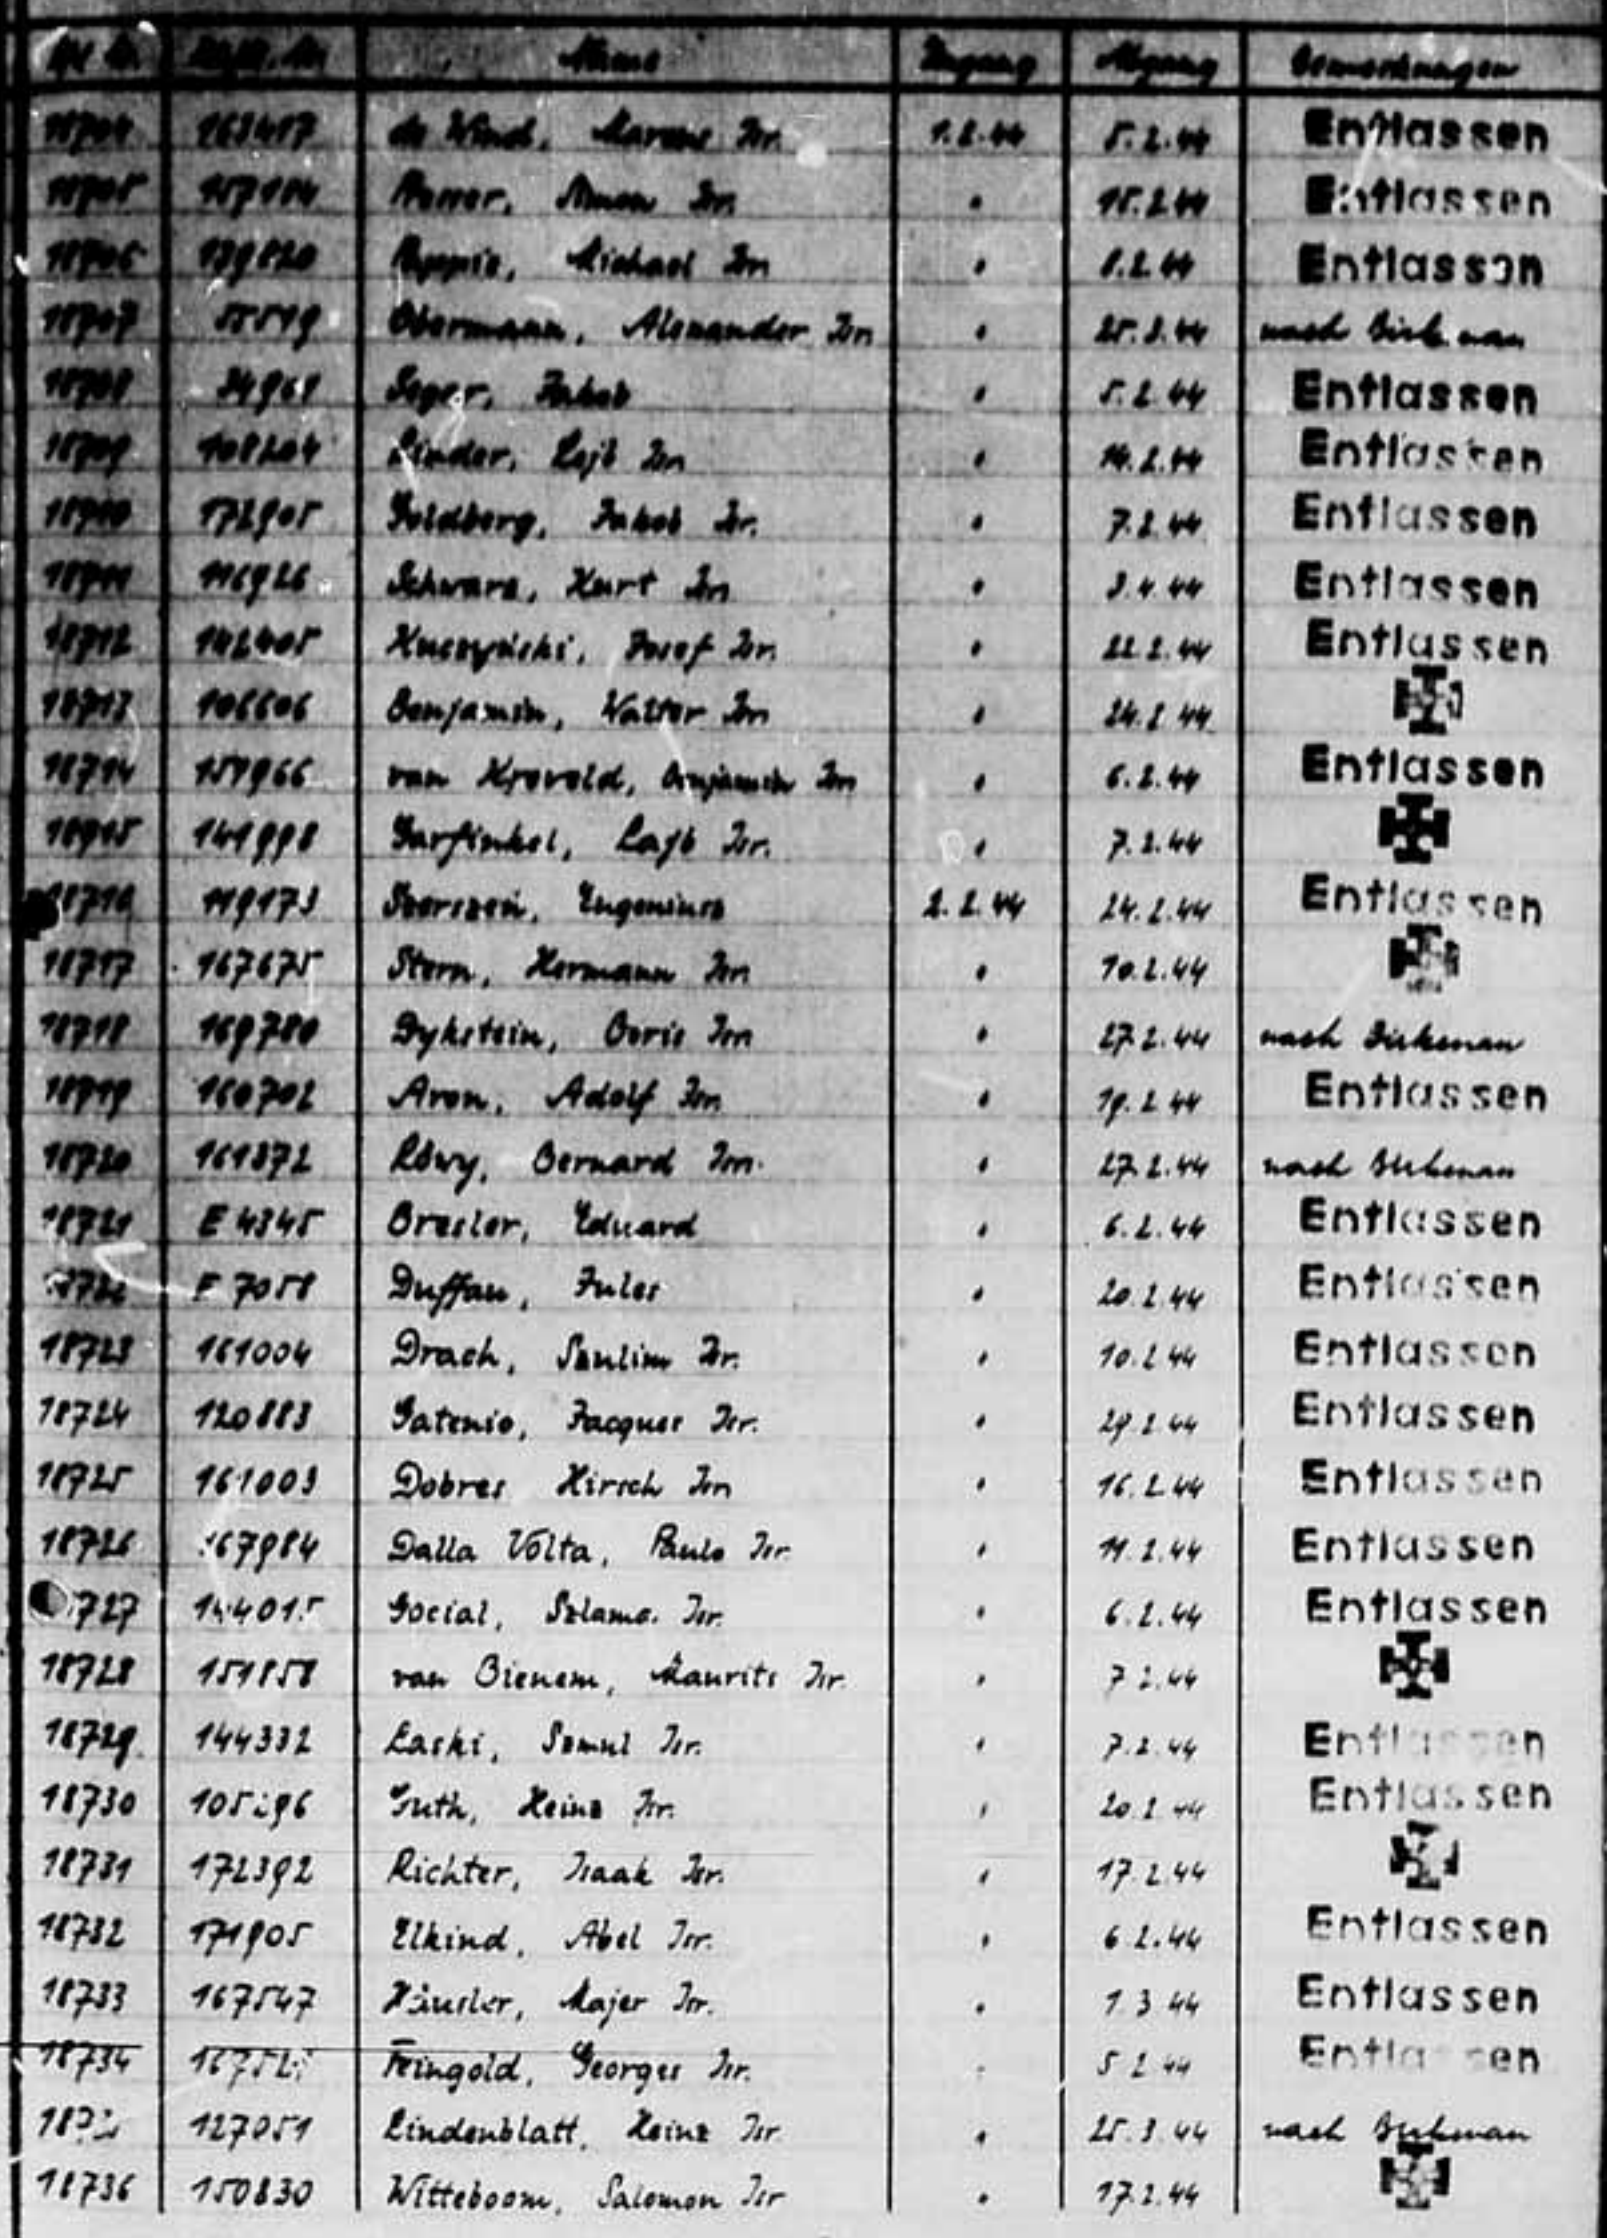 Name Zugang Abgang Bemerkungen
18704 163417 de Wind, Isr. 1.2.44 5.2.44 Entlassen
18705 Isr. " 15.2.44 Entlassen
18706 Michael Isr. " 8.2.44 Entlassen
18707 Obermann, Alexander Isr. " 25.3.44 nach Birkenau
18708 Jakob " 5.2.44 Entlassen
18709 108204 Linder, Lejb Isr. " 14.2.44 Entlassen
18710 172905 Goldberg, Jakob Isr. " 7.2.44 Entlassen
18711 116926 Schwarz, Kurt Isr. " 3.4.44 Entlassen
18712 142405 Kuczyński, Josef Isr. " 22.2.44 Entlassen
18713 106606 Benjamin, Walter Isr. " 24.2.44
18714 151966 van Kreveld, Benjamin Isr. " 6.2.44 Entlassen
18715 141998 Garfinkel, Lajb Isr. " 7.2.44
18716 119173 Eugeniusz 2.2.44 24.2.44 Entlassen
18717 167675 Stern, Hermann Isr. " 10.2.44
18718 169780 Dykstein, Boris Isr. " 27.2.44 nach Birkenau
18719 160702 Aron, Adolf Isr. " 19.2.44 Entlassen
18720 161372 Löwy, Bernard Isr. " 27.2.44 nach Birkenau
18721 E 4345 Bresler, Eduard " 6.2.44 Entlassen
F 7058 Duffau, Jules " 20.2.44 Entlassen
18723 161004 Drach, Szulim Isr. " 10.2.44 Entlassen
18724 120883 Gatenio, Jacques Isr. " 29.2.44 Entlassen
18725 161003 Dobres Hirsch Isr. " 16.2.44 Entlassen
18726 167984 Dalla Volta, Paulo Isr. " 11.2.44 Entlassen
Social, Szlama Isr. " 6.2.44 Entlassen
18728 151858 van Bienem, Maurits Isr. " 7.2.44
18729 144332 Laski, Szmul Isr. " 7.2.44 Entlassen
18730 Guth, Heinz Isr. " 20.2.44 Entlassen
18731 172392 Richter, Isaak Isr. " 17.2.44
18732 171905 Elkind, Abel Isr. " 6.2.44 Entlassen
18733 167547 Häusler, Majer Isr. " 1.3.44 Entlassen
18734 Feingold, Georges Isr. " 5.2.44 Entlassen
127051 Lindenblatt, Heinz Isr. " 25.3.44 nach Birkenau
18736 150830 Witteboom, Salomon Isr. " 17.2.44